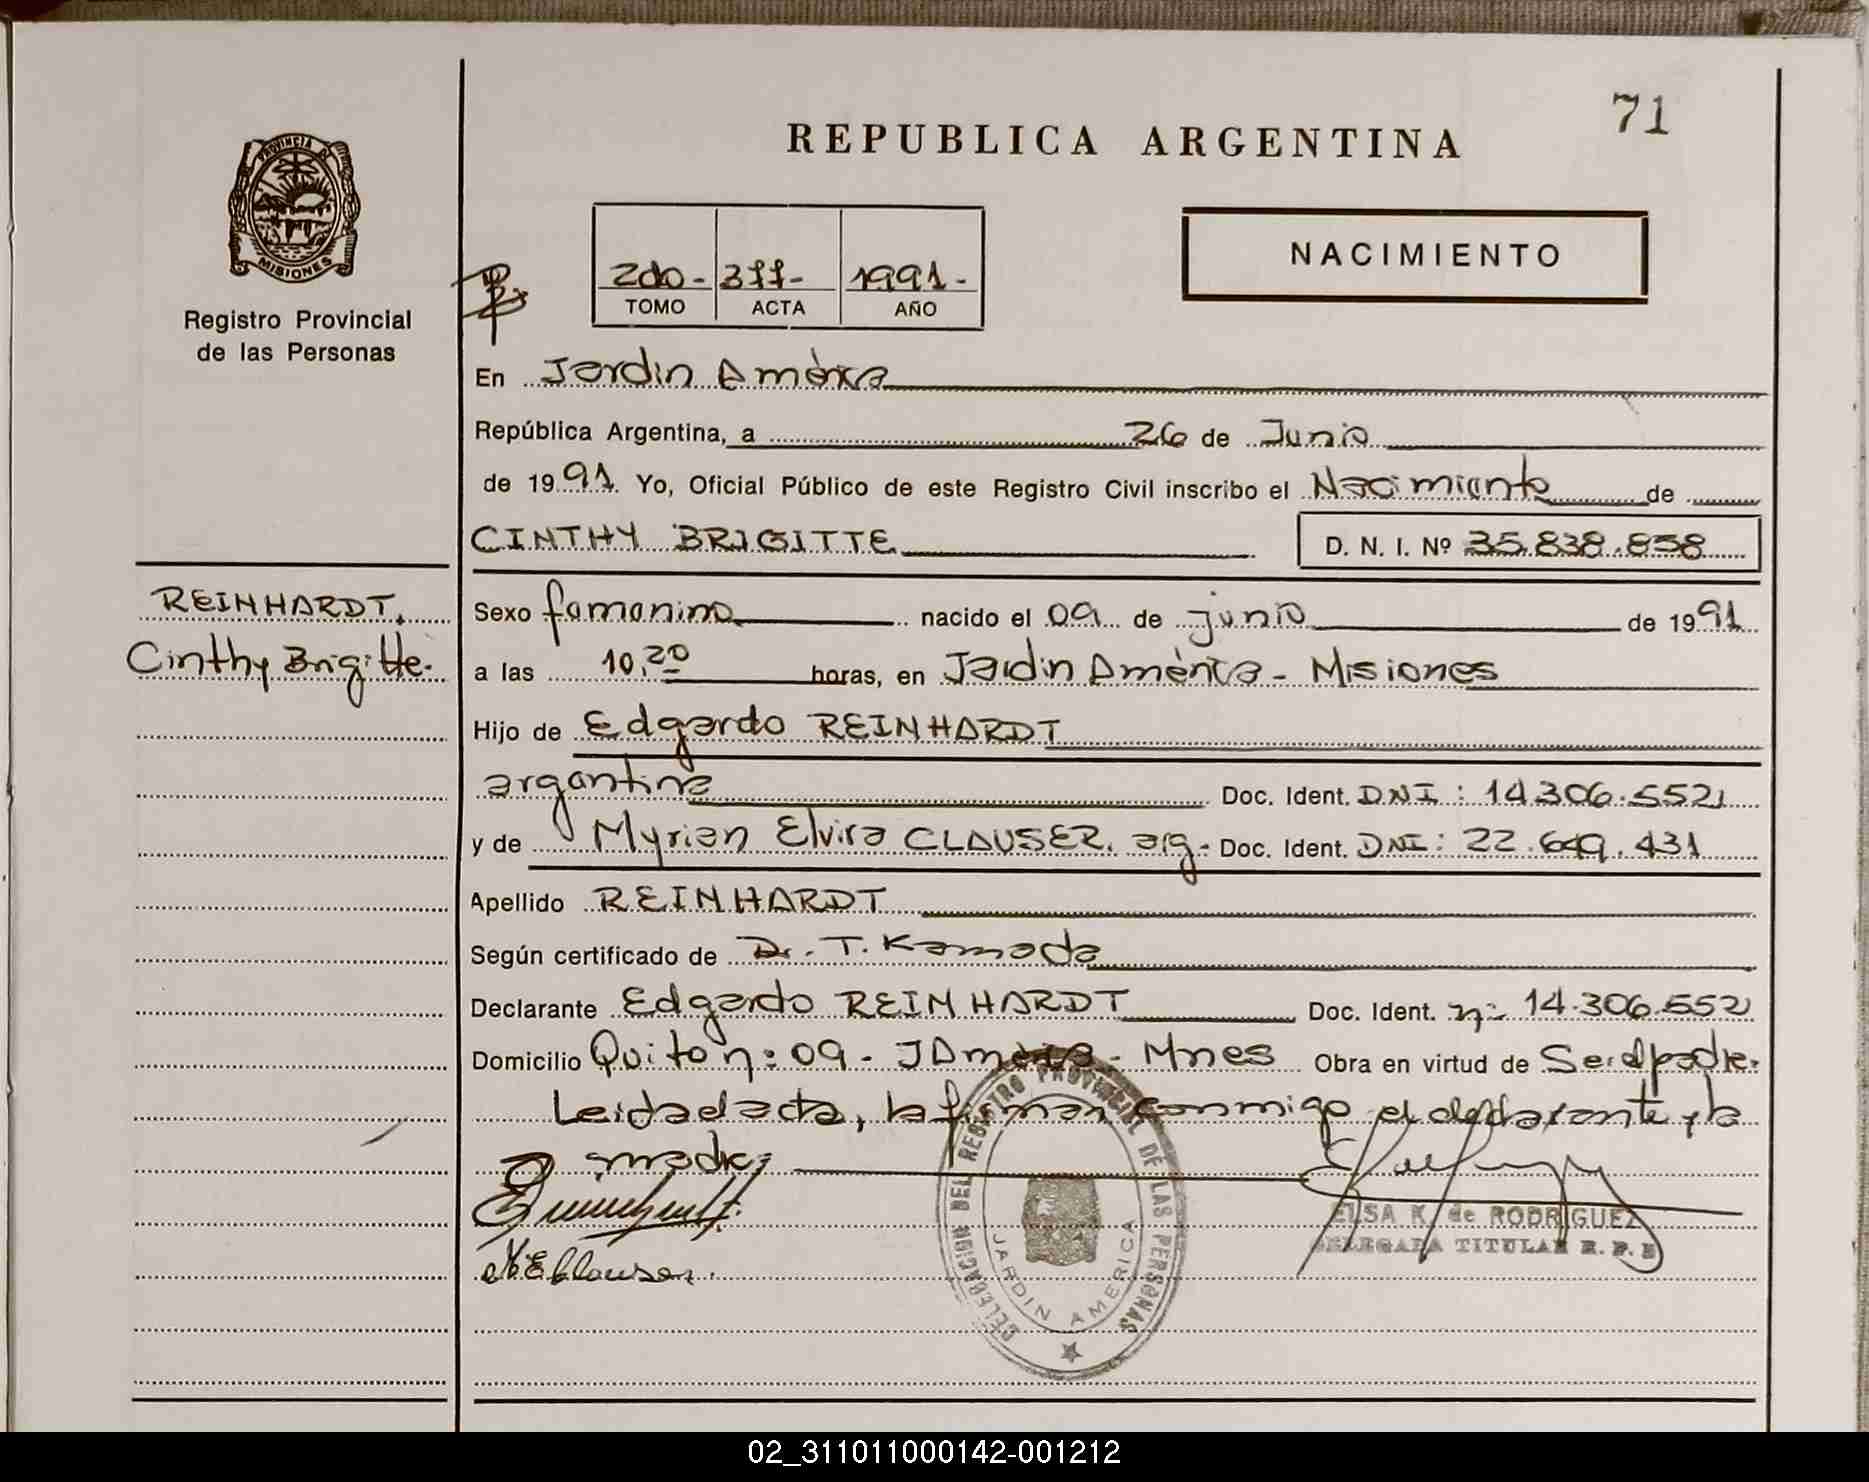 71
REPUBLICA ARGENTINA
PROVINCIA DE
MISIONES
Registro Provincial
de las Personas
NACIMIENTO
2do- 377- 1991-
TOMO ACTA AÑO
En Jardin América
República Argentina, a 26 de Junio
de 1991 Yo, Oficial Público de este Registro Civil inscribo el Nacimiento de
CINTHY BRIGITTE D. N. I. Nº 35.838.858
REINHARDT,
Cinthy Brigitte.
Sexo femenino nacido el 09 de junio de 1991
a las 10,20 horas, en Jardin América - Misiones
Hijo de Edgardo REINHARDT
argentina Doc. Ident. DNI: 14.306.552
y de Myrian Elvira CLAUSER. arg- Doc. Ident. DNI: 22.649.431
Apellido REINHARDT
Según certificado de Dr. T. Kamada
Declarante Edgardo REINHARDT Doc. Ident. n: 14.306.552
Domicilio Quito n: 09 - J América - Mnes Obra en virtud de Ser el padre.
Leida el acta, la firman conmigo el declarante y la
madre,
DELEGACION DEL REGISTRO PROVINCIAL DE LAS PERSONAS
JARDIN AMERICA
ELSA K. de RODRIGUEZ
DELEGADA TITULAR R. P. P.
M E Clauser.
02_311011000142-001212